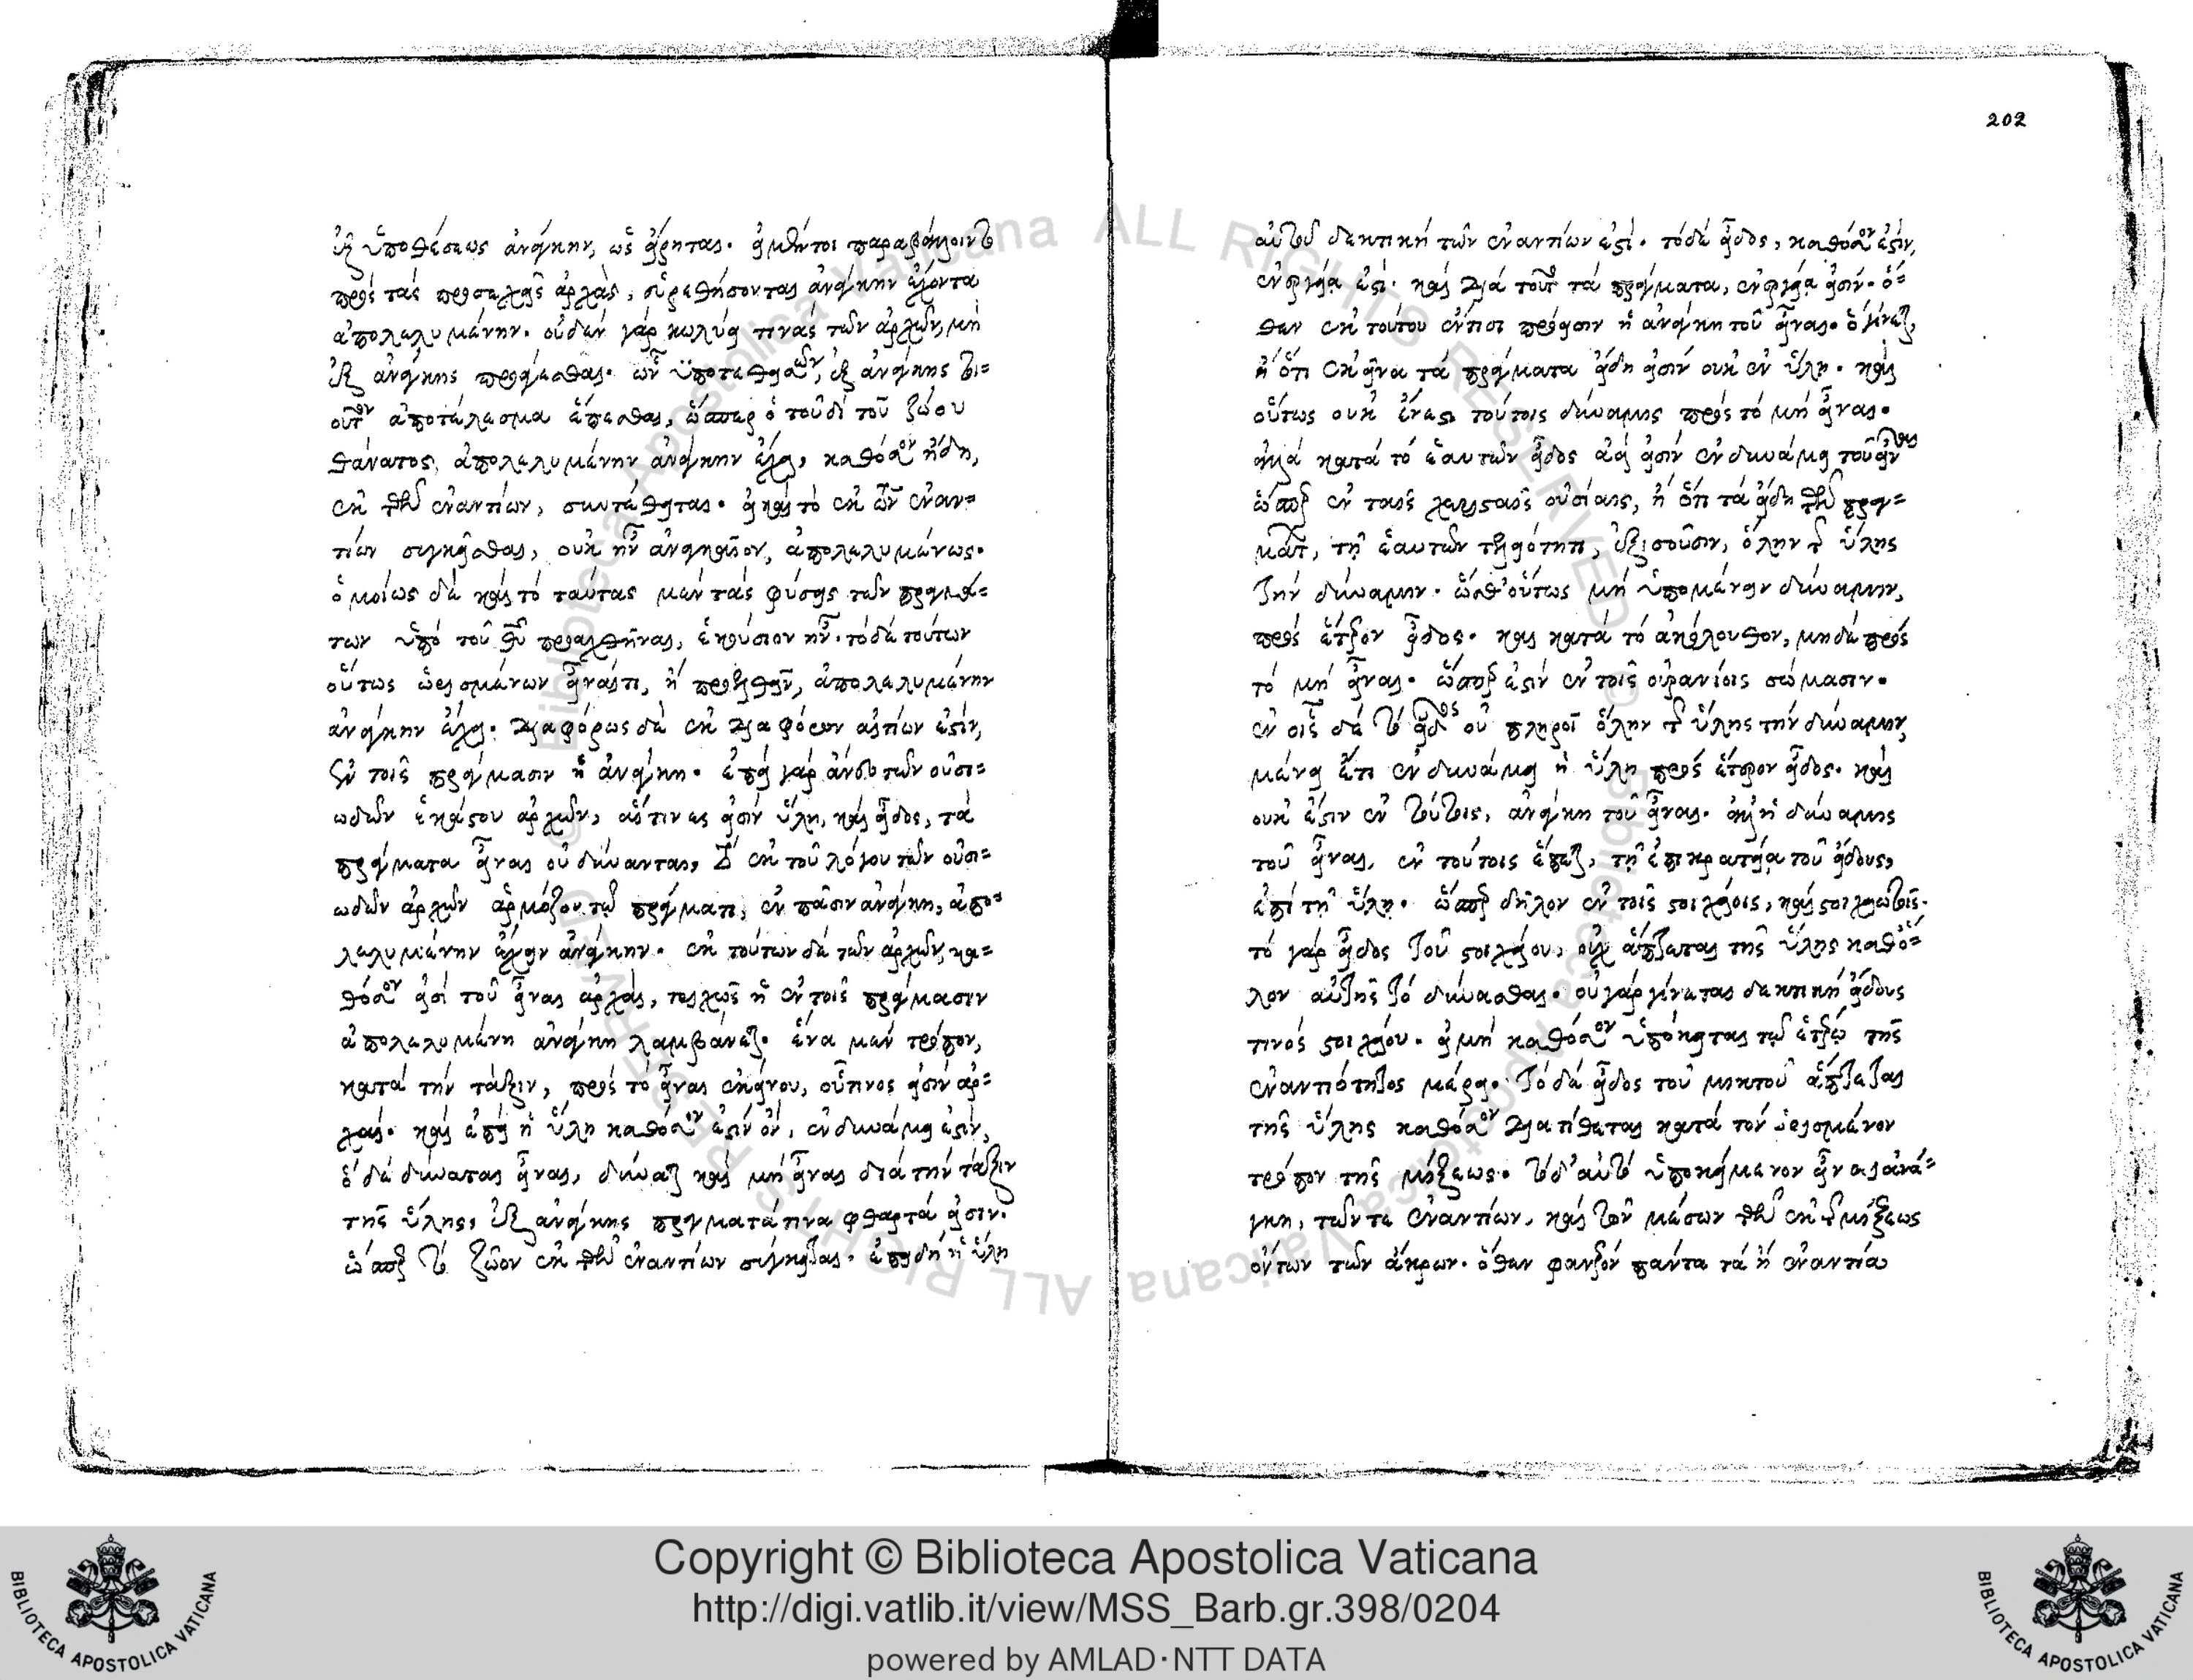 202
ἐξ ὑποθέσεως ἀνάγκην, ὡς εἴρηται. εἰ μέντοι παραβάλλοιντο
πρὸς τὰς προσεχεῖς ἀρχὰς, εὑρεθήσονται ἀνάγκην ἔχοντα
ἀπολελυμένην. οὐδὲν γὰρ κωλύει τινὰς τῶν ἀρχῶν, μὴ
ἐξ ἀνάγκης προάγεσθαι. ὧν ὑποτεθεισῶν, ἐξ ἀνάγκης τοι=
οῦτον ἀποτέλεσμα ἕπεσθαι, ὥσπερ ὁ τουδὶ τοῦ ζώου
θάνατος, ἀπολελυμένην ἀνάγκην ἔχει, καθόσον ἤδη,
ἐκ τῶν ἐναντίων, συντέθειται. εἰ καὶ τὸ ἐκ τῶν ἐναν=
τίων συγκεῖσθαι, οὐκ ἦν ἀναγκαῖον, ἀπολελυμένως.
ὁμοίως δὲ καὶ τὸ ταύτας μὲν τὰς φύσεις τῶν πραγμά=
των ὑπὸ τοῦ θεοῦ προαχθῆναι, ἑκούσιον ἦν. τὸ δὲ τούτων
οὕτως ὡρισμένων εἶναί τι, ἢ προελθεῖν, ἀπολελυμένην
ἀνάγκην ἔχει. διαφόρως δὲ ἐκ διαφόρων αἰτίων ἐστίν,
ἐν τοῖς πράγμασιν ἡ ἀνάγκη. ἐπεὶ γὰρ ἄνευ τῶν οὐσι=
ωδῶν ἑκάστου ἀρχῶν, αἵτινες εἰσὶν ὕλη, καὶ εἶδος, τὰ
πράγματα εἶναι οὐ δύνανται, τὸ ἐκ τοῦ λόγου τῶν οὐσι=
ωδῶν ἀρχῶν ἁρμόζον τῷ πράγματι, ἐν πᾶσιν ἀνάγκη, ἀπο=
λελυμένην ἔχειν ἀνάγκην. ἐκ τούτων δὲ τῶν ἀρχῶν, κα=
θόσον εἰσὶ τοῦ εἶναι ἀρχαὶ, τριχῶς ἡ ἐν τοῖς πράγμασιν
ἀπολελυμένη ἀνάγκη λαμβάνεται. ἕνα μὲν τρόπον,
κατὰ τὴν τάξιν, πρὸς τὸ εἶναι ἐκείνου, οὗτινος εἰσὶν ἀρ=
χαί. καὶ ἐπεὶ ἡ ὕλη καθόσον ἐστὶν ὂν, ἐν δυνάμει ἐστίν,
ὃ δὲ δύναται εἶναι, δύναται καὶ μὴ εἶναι διὰ τὴν τάξιν
τῆς ὕλης, ἐξ ἀνάγκης πράγματά τινα φθαρτά εἰσιν.
ὥσπερ τὸ ζῶον ἐκ τῶν ἐναντίων σύγκειται, ἐπειδὴ ἡ ὕλη
αὐτοῦ δεκτικὴ τῶν ἐναντίων ἐστί. τὸ δὲ εἶδος, καθόσον ἐστίν,
ἐνέργεια ἐστὶ. καὶ διὰ τοῦτο τὰ πράγματα, ἐνεργείᾳ εἰσίν. ὅ=
θεν ἐκ τούτου ἐνίοις πρόεισιν ἡ ἀνάγκη τοῦ εἶναι. ὃ γίνεται,
ἢ ὅτι ἐκεῖνα τὰ πράγματα εἴδη εἰσὶν οὐκ ἐν ὕλῃ. καὶ
οὕτως οὐκ ἔνεστι τούτοις δύναμις πρὸς τὸ μὴ εἶναι.
ἀλλὰ κατὰ τὸ ἑαυτῶν εἶδος ἀεὶ εἰσὶν ἐν δυνάμει τοῦ εἶναι
ὥσπερ ἐν ταῖς χωρισταῖς οὐσίαις, ἢ ὅτι τὰ εἴδη τῶν πραγ=
μάτων, τῇ ἑαυτῶν τελειότητι, ἐξισοῦσιν, ὅλην τῆς ὕλης
τὴν δύναμιν. ὥσθ' οὕτως μὴ ὑπομένειν δύναμιν,
πρὸς ἕτερον εἶδος. καὶ κατὰ τὸ ἀκόλουθον, μηδὲ πρὸς
τὸ μὴ εἶναι. ὥσπερ ἐστὶν ἐν τοῖς οὐρανίοις σώμασιν.
ἐν οἷς δὲ τὸ εἶδος οὐ πληροῖ ὅλην τῆς ὕλης τὴν δύναμιν,
μένει ἔτι ἐν δυνάμει ἡ ὕλη πρὸς ἕτερον εἶδος. καὶ
οὐκ ἔστιν ἐν τούτοις, ἀνάγκη τοῦ εἶναι. ἀλλ' ἡ δύναμις
τοῦ εἶναι, ἐν τούτοις ἕπεται, τῇ ἐπικρατείᾳ τοῦ εἴδους,
ἐπὶ τῇ ὕλῃ. ὥσπερ δῆλον ἐν τοῖς στοιχείοις, καὶ στοιχειωτοῖς.
τὸ γὰρ εἶδος τοῦ στοιχείου, οὐχ ἅπτεται τῆς ὕλης καθό=
λον αὐτῆς τὸ δύνασθαι. οὐ γὰρ γίνεται δεκτικὴ εἴδους
τινὸς στοιχείου. εἰ μὴ καθόσον ὑπόκειται τῷ ἑτέρῳ τῆς
ἐναντιότητος μέρει. τὸ δὲ εἶδος τοῦ μικτοῦ ἅπτεται
τῆς ὕλης καθόσον διατίθεται κατὰ τὸν ὡρισμένον
τρόπον τῆς μίξεως. τὸ δ' αὐτὸ ὑποκείμενον εἶναι ἀνά=
γκη, τῶν τε ἐναντίων, καὶ τῶν μέσων τῶν ἐκ τῆς μίξεως
ὄντων τῶν ἄκρων. ὅθεν φανερὸν πάντα τὰ ἢ ἐναντία
Copyright © Biblioteca Apostolica Vaticana
http://digi.vatlib.it/view/MSS_Barb.gr.398/0204
powered by AMLAD·NTT DATA
BIBLIOTECA APOSTOLICA VATICANA
BIBLIOTECA APOSTOLICA VATICANA